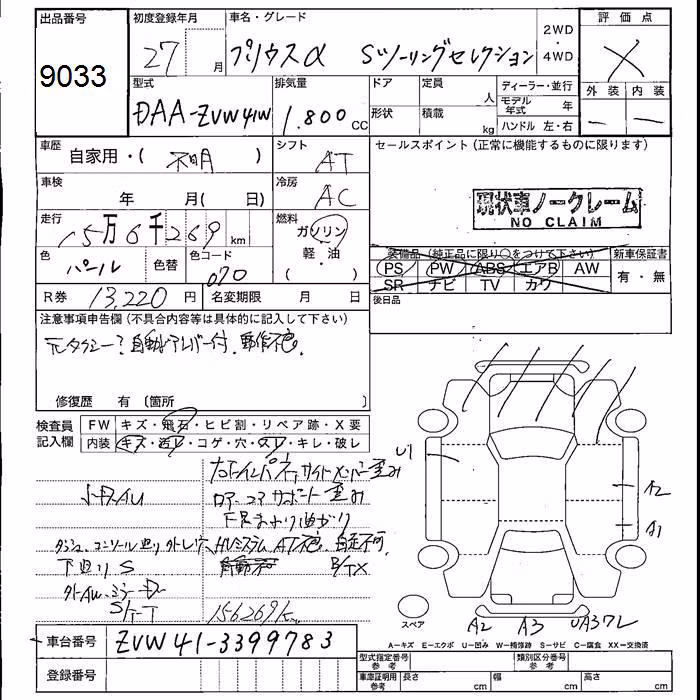 出品番号
9033
初度登録年月
27 月
車名・グレード
プリウスα Sツーリングセレクション
2WD
・
4WD
評価点
X
型式
DAA-ZVW41W
排気量
1.800 CC
ドア
形状
定員
人
積載
kg
ディーラー・並行
モデル年式 年
ハンドル 左・右
外装
内装
— —
車歴
自家用・( 不明 )
シフト
AT
セールスポイント(正常に機能するものに限ります)
車検
年 月( 日)
冷房
AC
現状車ノークレーム
NO CLAIM
走行
15万6千269 km
燃料
ガソリン
・
軽・油
( )
色
パール
色替
色コード
070
装備品(純正品に限り○をつけて下さい)
PS PW ABS エアB AW
SR ナビ TV カワ
新車保証書
有・無
R券 13,220 円
名変期限 月 日
後日品
注意事項申告欄(不具合内容等は具体的に記入して下さい)
元タクシー?自動ドアレバー付、動作不
修復歴 有(箇所 )
検査員
記入欄
FW キズ・飛石・ヒビ割・リペア跡・X要
内装 キズ・汚レ・コゲ・穴・スレ・キレ・破レ
小キズAU
コアサポート歪み
下廻りS
S/T-T
156269km
U1
A2
A1
スペア
A2 A3 UA3ワレ
A=キズ E=エクボ U=凹み W=補修跡 S=サビ C=腐食 XX=交換済
車台番号
ZVW41-3399783
登録番号
型式指定番号
参考
類別区分番号
参考
車庫証明用
参考
長さ cm
幅 cm
高さ cm